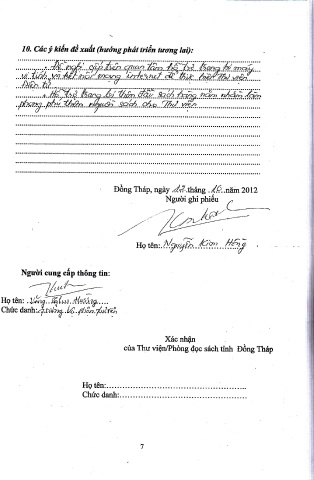 10. Các ý kiến đề xuất (hướng phát triển tương lai):
Đề nghị cấp trên quan tâm hỗ trợ trang bị máy
vi tính và kết nối mạng Internet để thực hiện Thư viện
điện tử.
Hỗ trợ trang bị thêm đầu sách hàng năm nhằm làm
phong phú thêm nguồn sách cho Thư viện
Đồng Tháp, ngày tháng năm 2012
Người ghi phiếu
Họ tên: Nguyễn Kim Hồng
Người cung cấp thông tin:
Họ tên:
Chức danh:
Xác nhận
của Thư viện/Phòng đọc sách tỉnh Đồng Tháp
Họ tên:
Chức danh:
7